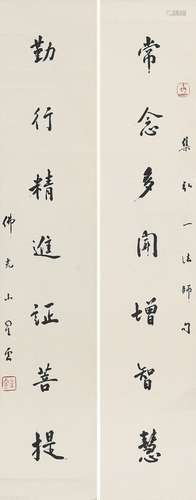 常念多聞增智慧
集弘一法師句
勤行精進証菩提
佛光山星雲